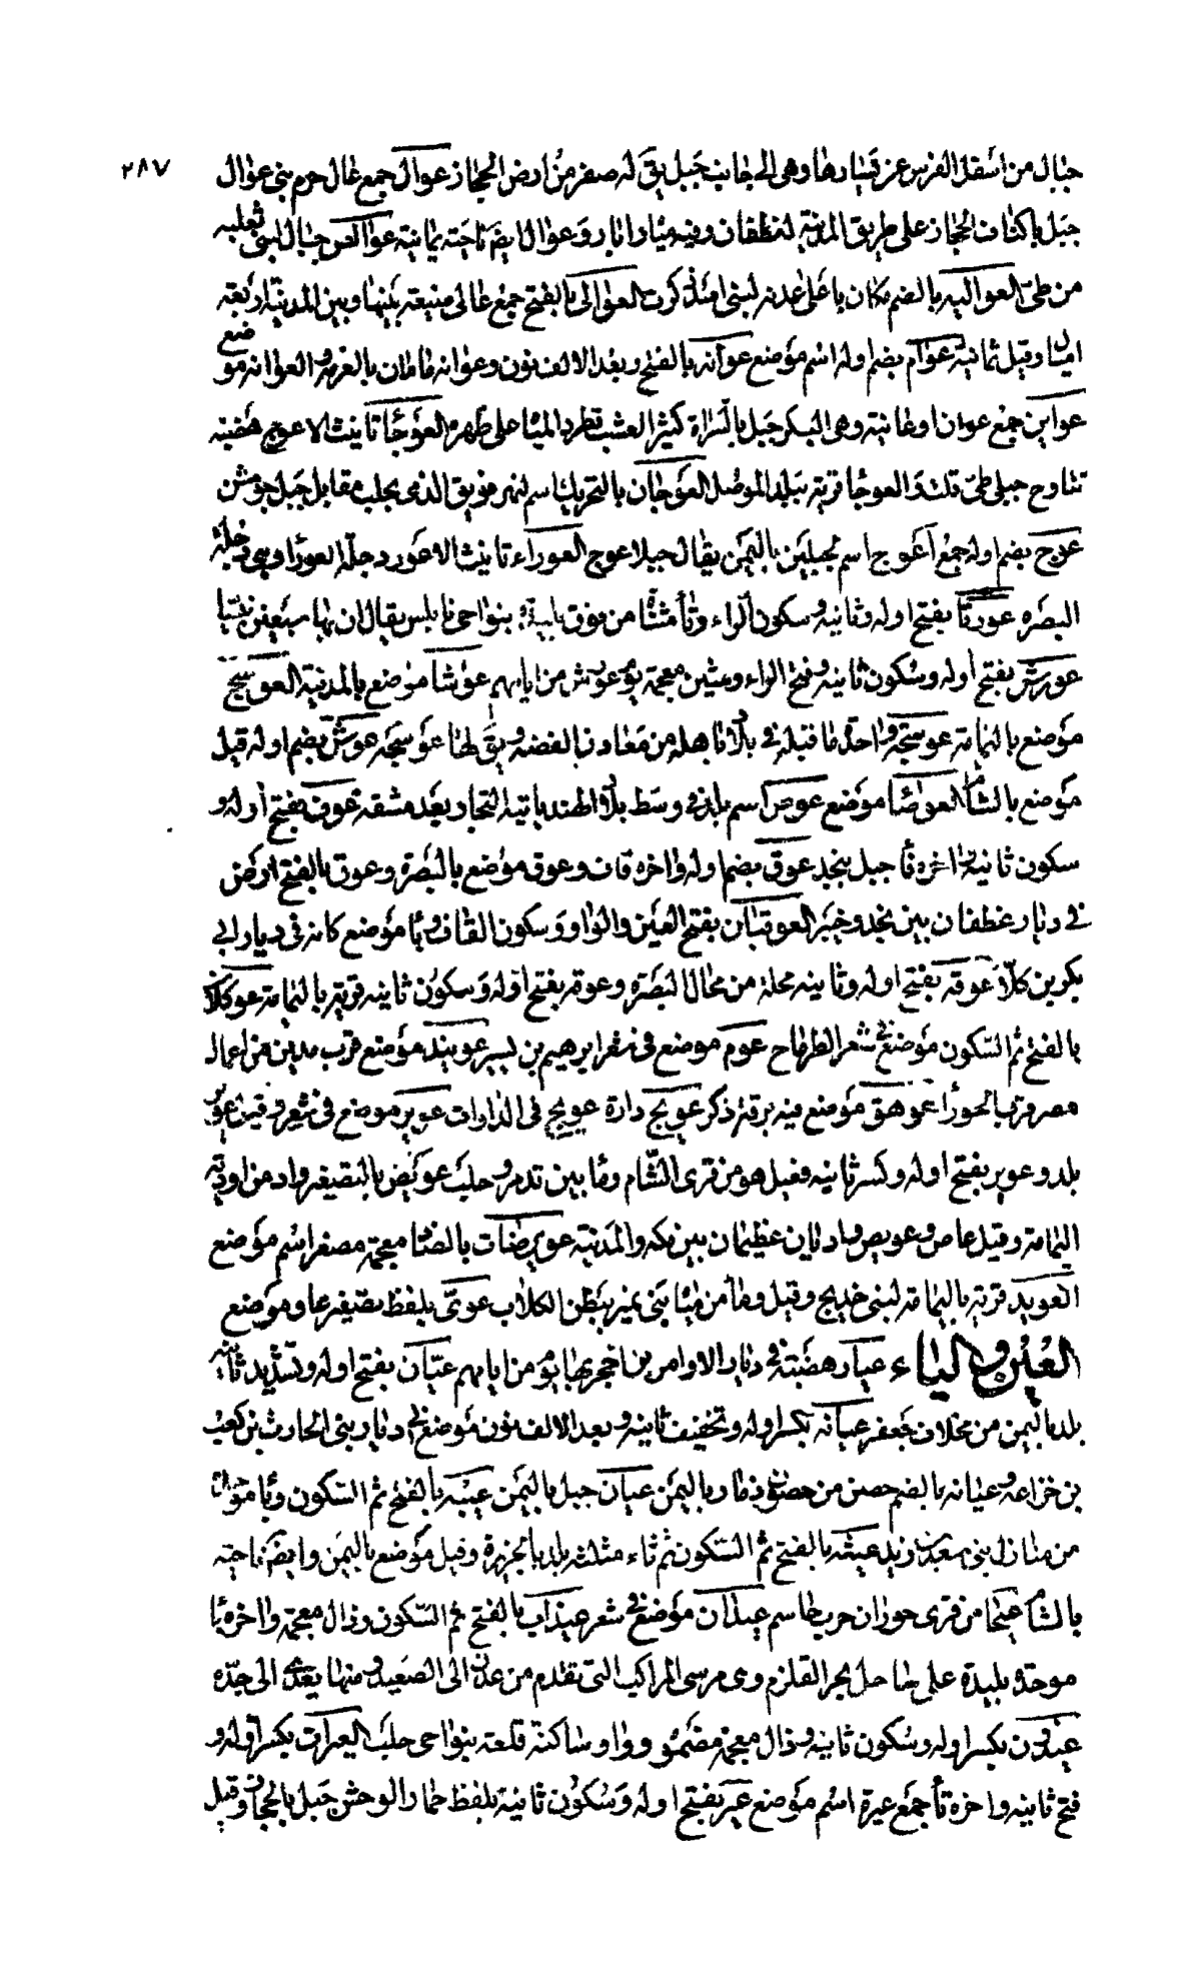 ٢٨٧
جبال من اسفل الفرش عن يسارها وهى الى جانب جبل يق له صفر من ارض الحجاز عوال جمع عال حزم بنى عوال
جبل باكناف الحجاز على طريق المدينة لغطفان وفيه مياه ابار وعوال ايضا ناحية يمانية عوالص جبال لبنى ثعلبه
من طى العواليه بالضم مكان باعلى عدنه لبنى اسد ذكرت العوالى بالفتح جمع عالى ضيعة بينها وبين المدينة اربعة
اميال وقيل ثمانية عوام بضم اوله اسم موضع عوانه بالفتح وبعد الالف نون وعوانه ماءان بالعرمه والعوانه موضع
عواين جمع عوان او عانية وهى البكر جبل بالسراة كثير العشب تطرد المياه على ظهره العوجا تانيث الاعوج هضبة
تناوح جبلى طى قلت والعوجا قرية ببلد الموصل العوجان بالتحريك اسم لنهر قويق الذى بحلب مقابل جبل جوشن
عوج بضم اوله جمع اعوج اسم لجبلين باليمن يقال جبلا عوج العوراء تانيث الاعور دجلة العورا وهى دجلة
البصره عورتا بفتح اوله وثانيه وسكون الراء وتا مثناة من فوق بليدة بنواحى نابلس يقال ان بها سبعين نبيا
عورش بفتح اوله وسكون ثانيه وفتح الراء وشين معجمة يوم عورش من ايامهم عوشا موضع بالمدينة العوسج
موضع باليمامة عوسجه واحدة ما قبله فى بلاد باهله من معادن الفضه ويق لها عوسجه عوش بضم اوله قيل
موضع بالشام العواصا موضع عوص اسم بلد فى وسط بلاد الهند ياتيه التجار بعد مشقة عوف بفتح اوله و
سكون ثانيه واخره فا جبل بنجد عوق بضم اوله واخره قاف وعوق موضع بالبصرة وعوق بالفتح ارض
فى ديار غطفان بين نجد وخيبر العوقبان بفتح العين والواو وسكون القاف وبا موضع كانه فى ديار ابى
بكر بن كلاب عوقه بفتح اوله وثانيه محلة من محال البصره وعوقه بفتح اوله وسكون ثانيه قرية باليمامة عوكلان
بالفتح ثم السكون موضع فى شعر الطرماح عوم موضع فى شعر ابرهيم بن بسير عويند موضع قرب مدين من اعمال
مصر قرب الحورا عوهق موضع فيه برقة ذكر عويج دارة عويج فى الدارات عوير موضع فى شعر وقيل عوير
بلد وعوير بفتح اوله وكسر ثانيه فعيل هو من قرى الشام وما بين تدمر وحلب عويص بالتصغير واد من اودية
اليمامة وقيل عاص وعويص واديان عظيمان بين مكه والمدينة عويرضات بالضاد معجمة مصغر اسم موضع
العويند قرية باليمامة لبنى خديج وقيل وماء من مياه بنى نمير ببطن الكلاب عوىّ بلفظ تصغير عاو موضع
العين والياء عيار هضبة فى ديار الاواس بن الحجر بها يوم من ايامهم عيّان بفتح اوله وتشديد ثانيه
بلد باليمن من مخلاف جعفر عيانه بكسر اوله وتخفيف ثانيه وبعد الالف نون موضع فى ديار بنى الحارث بن كعب
بن خزاعه وعيانه بالضم حصن من حصون ذمار باليمن عيبان جبل باليمن عيبه بالفتح ثم السكون وبا موحدة
من منازل بنى سعد بن زيد عيثه بالفتح ثم السكون ثم ثاء مثلثه بلد بالجزيرة وقيل موضع باليمن وايضا ناحية
بالشام عيثما من قرى حوران جربطا اسم عيدان موضع فى شعر عيذاب بالفتح ثم السكون وذال معجمة واخره با
موحدة بليدة على ساحل بحر القلزم وهى مرسى المراكب التى تقدم من عدن الى الصعيد ومنها يعدى الى جدّه
عيذون بكسر اوله وسكون ثانيه وذال معجمة مضمومه وواو ساكنة قلعة بنواحى حلب العيرات بكسر اوله و
فتح ثانيه واخره تا جمع عيرة اسم موضع عير بفتح اوله وسكون ثانية بلفظ حمار الوحش جبل بالحجاز وقيل